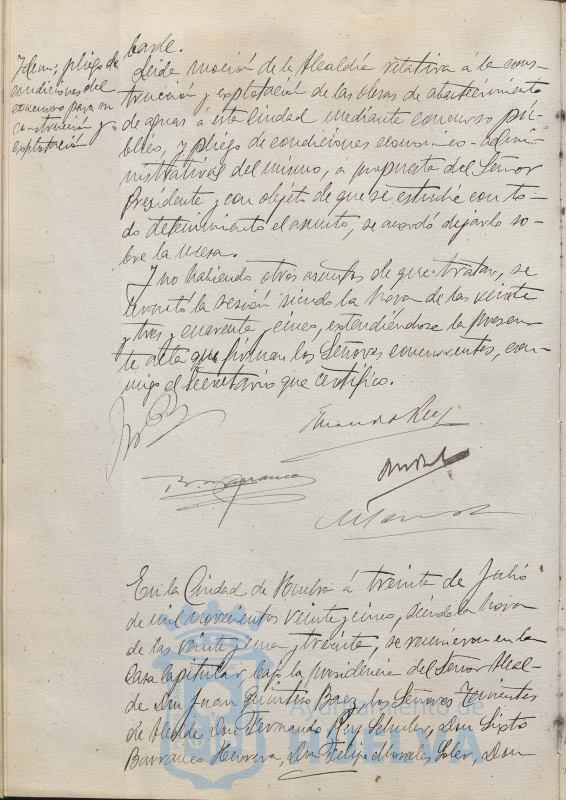 Idem, pliego de
condiciones del
concurso para su
construcción y
explotación
barle.
Leída moción de la Alcaldía relativa á la cons-
trucción y explotación de las obras de abastecimiento
de aguas á esta ciudad mediante concurso pú-
blico, y pliego de condiciones económico-admi-
nistrativas del mismo, á propuesta del Señor
Presidente y con objeto de que se estudie con to-
do detenimiento el asunto, se acordó dejarlo so-
bre la mesa.
Y no habiendo otros asuntos de que tratar, se
levantó la sesión siendo la hora de las veinte
y tres y cuarenta y cinco, extendiéndose la presen-
te acta que firman los Señores concurrentes, con-
migo el Secretario que certifico.
Fernando Rey
B. Barranco
En la Ciudad de Huelva á treinta de Julio
de mil novecientos veinticinco, siendo la hora
de las veintiuna y treinta, se reunieron en la
Casa Capitular bajo la presidencia del Señor Alcal-
de Don Juan Quintero Baez, los Señores Tenientes
de Alcalde Don Fernando Rey Schuler, Don Sixto
Barranco Herrera, Don Felipe Morales Soler, Don
Ayuntamiento de
HUELVA